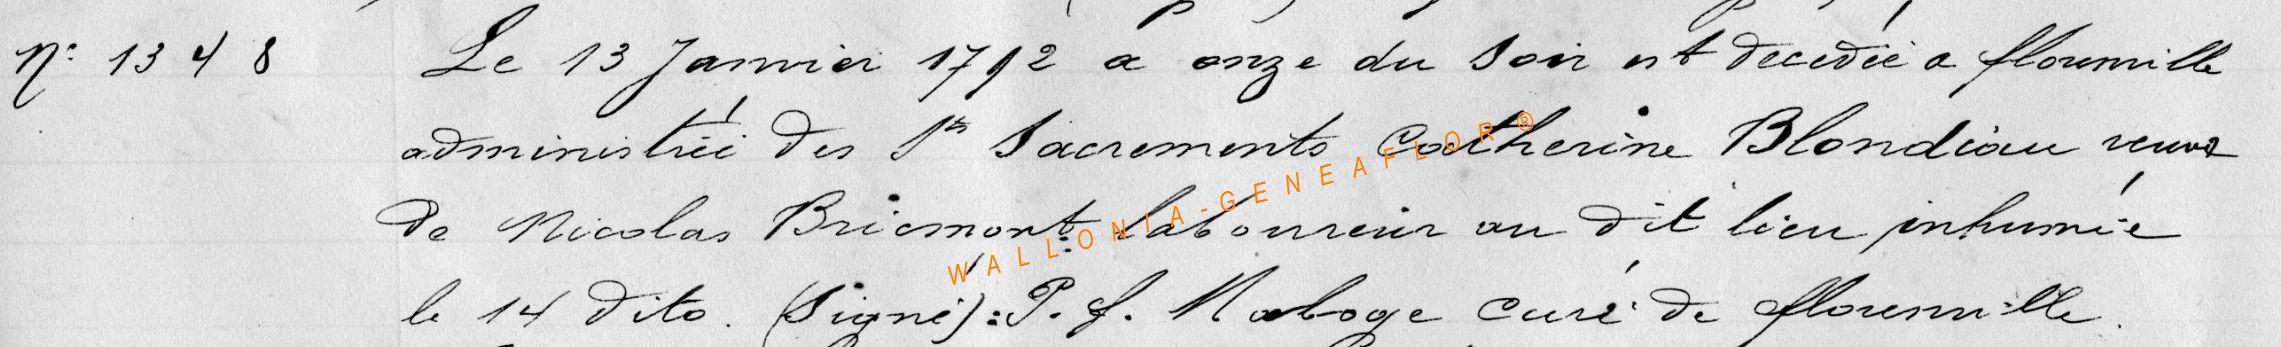 N° 1348 Le 13 Janvier 1792 a onze du soir est decedée a florenville
administrée des Sts Sacrements Catherine Blondiau veuve
de Nicolas Bricmont laboureur au dit lieu inhumée
le 14 dito. (Signé): P. f. Maboge curé de florenville.
WALLONIA-GENEAFLOR®